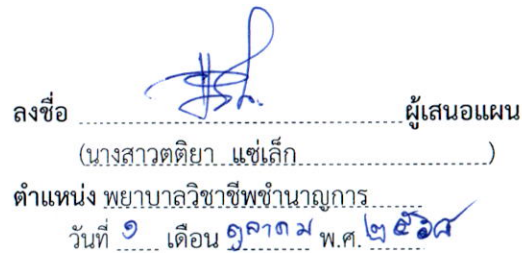 ลงชื่อ ผู้เสนอแผน
(นางสาวตติยา แซ่เล็ก)
ตำแหน่ง พยาบาลวิชาชีพชำนาญการ
วันที่ ๑ เดือน ตุลาคม พ.ศ. ๒๕๖๘